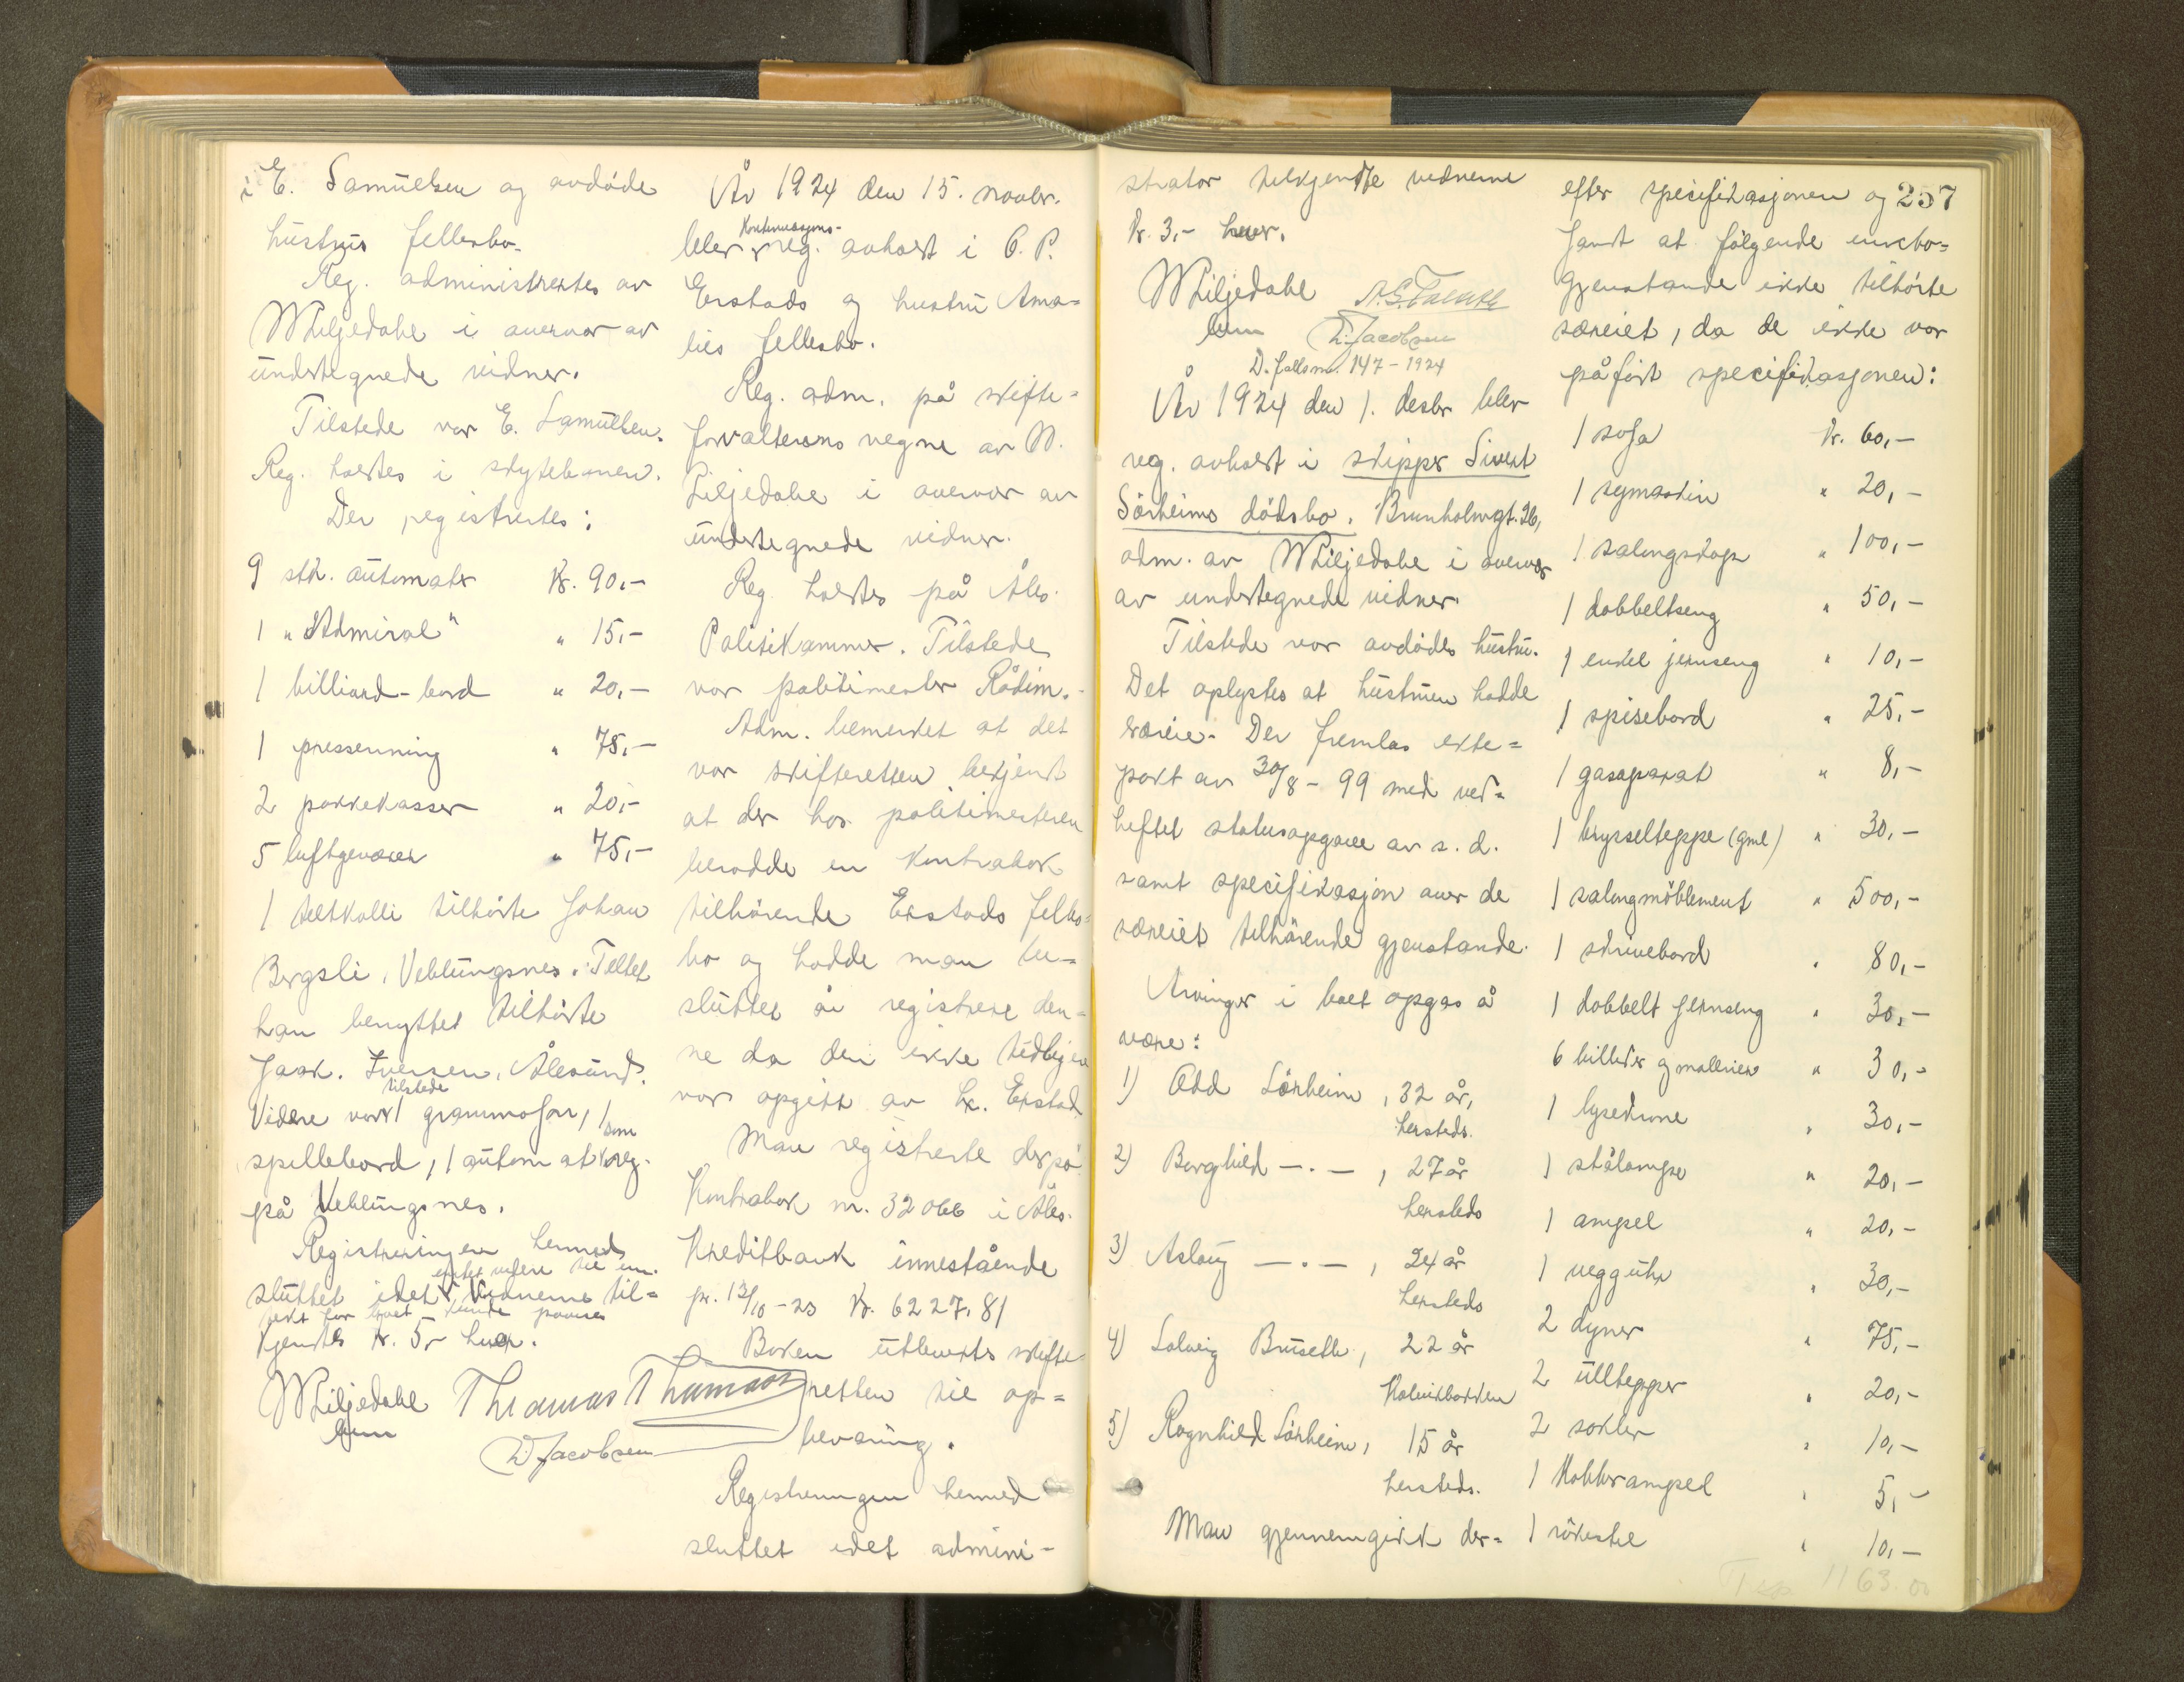 i E. Samuelsen og avdøde
hustrus fellesbo.
Reg. administrertes av
W Liljedahl i overvær av
undertegnede vidner.
Tilstede var E. Samuelsen.
Reg. holdtes i skytebanen.
Der registrertes:
9 stk. automater Kr. 90,-
1 " "Admiral" " 15,-
1 billiard-bord " 20,-
1 pressenning " 75,-
2 pakkekasser " 20,-
5 luftgeværer " 75,-
1 teltkolli tilhørte Johan
Bergsli, Veblungsnes. Teltet
han benyttet tilhørte
Jaak. Iversen, Ålesund.
tilstede
Videre var 1 grammofon, 1
som
spillebord, 1 automat reg.
på Veblungsnes.
Registreringen hermed
intet videre til inn-
sluttet idet vidnerne til-
tekt for boet kunde påvises
kjendtes kr. 5,- hver.
W Liljedahl Thomas Thomassen
D. Jacobsen
År 1924 den 15. novbr.
Kontinuasjons-
blev reg. avholdt i O. P.
Erstads og hustru Ama-
lies fellesbo.
Reg. adm. på skifte-
forvalterens vegne av W.
Liljedahl i overvær av
undertegnede vidner.
Reg. holdtes på Åles.
Politikammer. Tilstede
var politimester Rådim.
Adm. bemerket at det
var skifteretten bekjendt
at der hos politimesteren
berodde en kontrabok
tilhørende Erstads felles-
bo og hadde man be-
sluttet å registrere den-
ne da den ikke tidligere
var opgitt av hr. Erstad.
Man registrerte derpå:
Kontrabok nr. 32066 i Åles.
Kreditbank innestående
pr. 13/10-23 Kr. 6227,81
Boken utlevertes skifte-
retten til op-
bevaring.
Registreringen hermed
sluttet idet admini-
strator tilkjendte vidnerne
kr. 3,- hver.
W Liljedahl
D. Jacobsen
D. fallsnr. 147-1924
År 1924 den 1. desbr. blev
reg. avholdt i skipper Sivert
Sørheims dødsbo, Brunholmgt. 26,
adm. av W Liljedahl i overvær
av undertegnede vidner.
Tilstede var avdødes hustru.
Det oplystes at hustruen hadde
særeie. Der fremlas ekte-
pakt av 30/8-99 med ved-
heftet statusopgave av s. d.
samt specifikasjon over de
særeiet tilhørende gjenstande.
Arvinger i boet opgas å
være:
1) Odd Sørheim, 32 år,
hersteds.
2) Borghild -.-, 27 år
hersteds
3) Aslaug -.-, 24 år
hersteds
4) Solveig Buseth, 22 år
Kolvikbakken
5) Ragnhild Sørheim, 15 år
hersteds.
Man gjennemgikk der-
257
efter specifikasjonen og
fandt at følgende innbo-
gjenstande ikke tilhørte
særeiet, da de ikke var
påført specifikasjonen:
1 sofa Kr. 60,-
1 symaskin " 20,-
1 salongskap " 100,-
1 dobbeltseng " 50,-
1 enkel jernseng " 10,-
1 spisebord " 25,-
1 gasaparat " 8,-
1 brysselteppe (gml) " 30,-
1 salongmöblement " 500,-
1 skrivebord " 80,-
1 dobbelt jernseng " 30,-
6 billeder og mallerier " 30,-
1 lysekrone " 30,-
1 stålampe " 20,-
1 ampel " 20,-
1 vegguhr " 30,-
2 dyner " 75,-
2 ulltepper " 20,-
2 sokler " 10,-
1 kobberampel " 5,-
1 rökestel " 10,-
1163.00